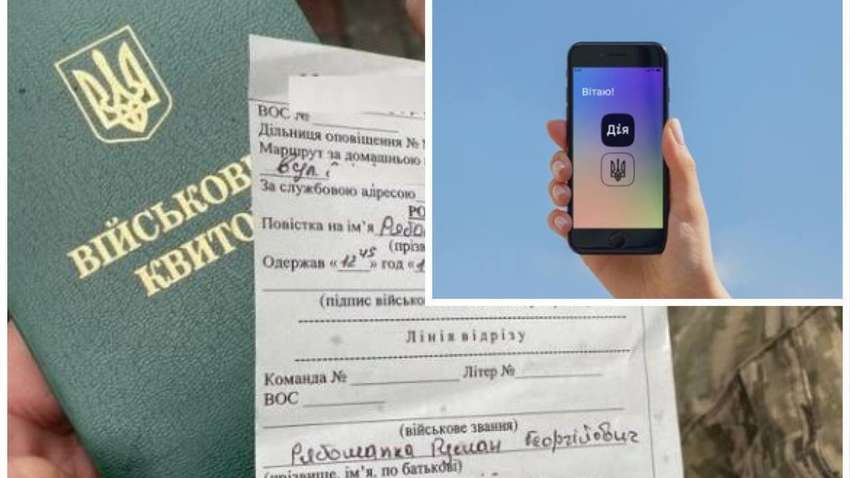 ВІЙСЬКОВ
КВИТО
ВОС №
Дільниця оповіщення №
Маршрут за домашньою
За службовою адресою
РО
Повістка на ім'я Рябо
(прізв
Одержав «12 45» год «1
(підпис військово
Лінія відрізу
Команда № Літер №
ВОС
(військове звання)
Рябошапка Руслан Георгійович
(прізвище, ім'я, по батькові)
Вітаю!
Дія